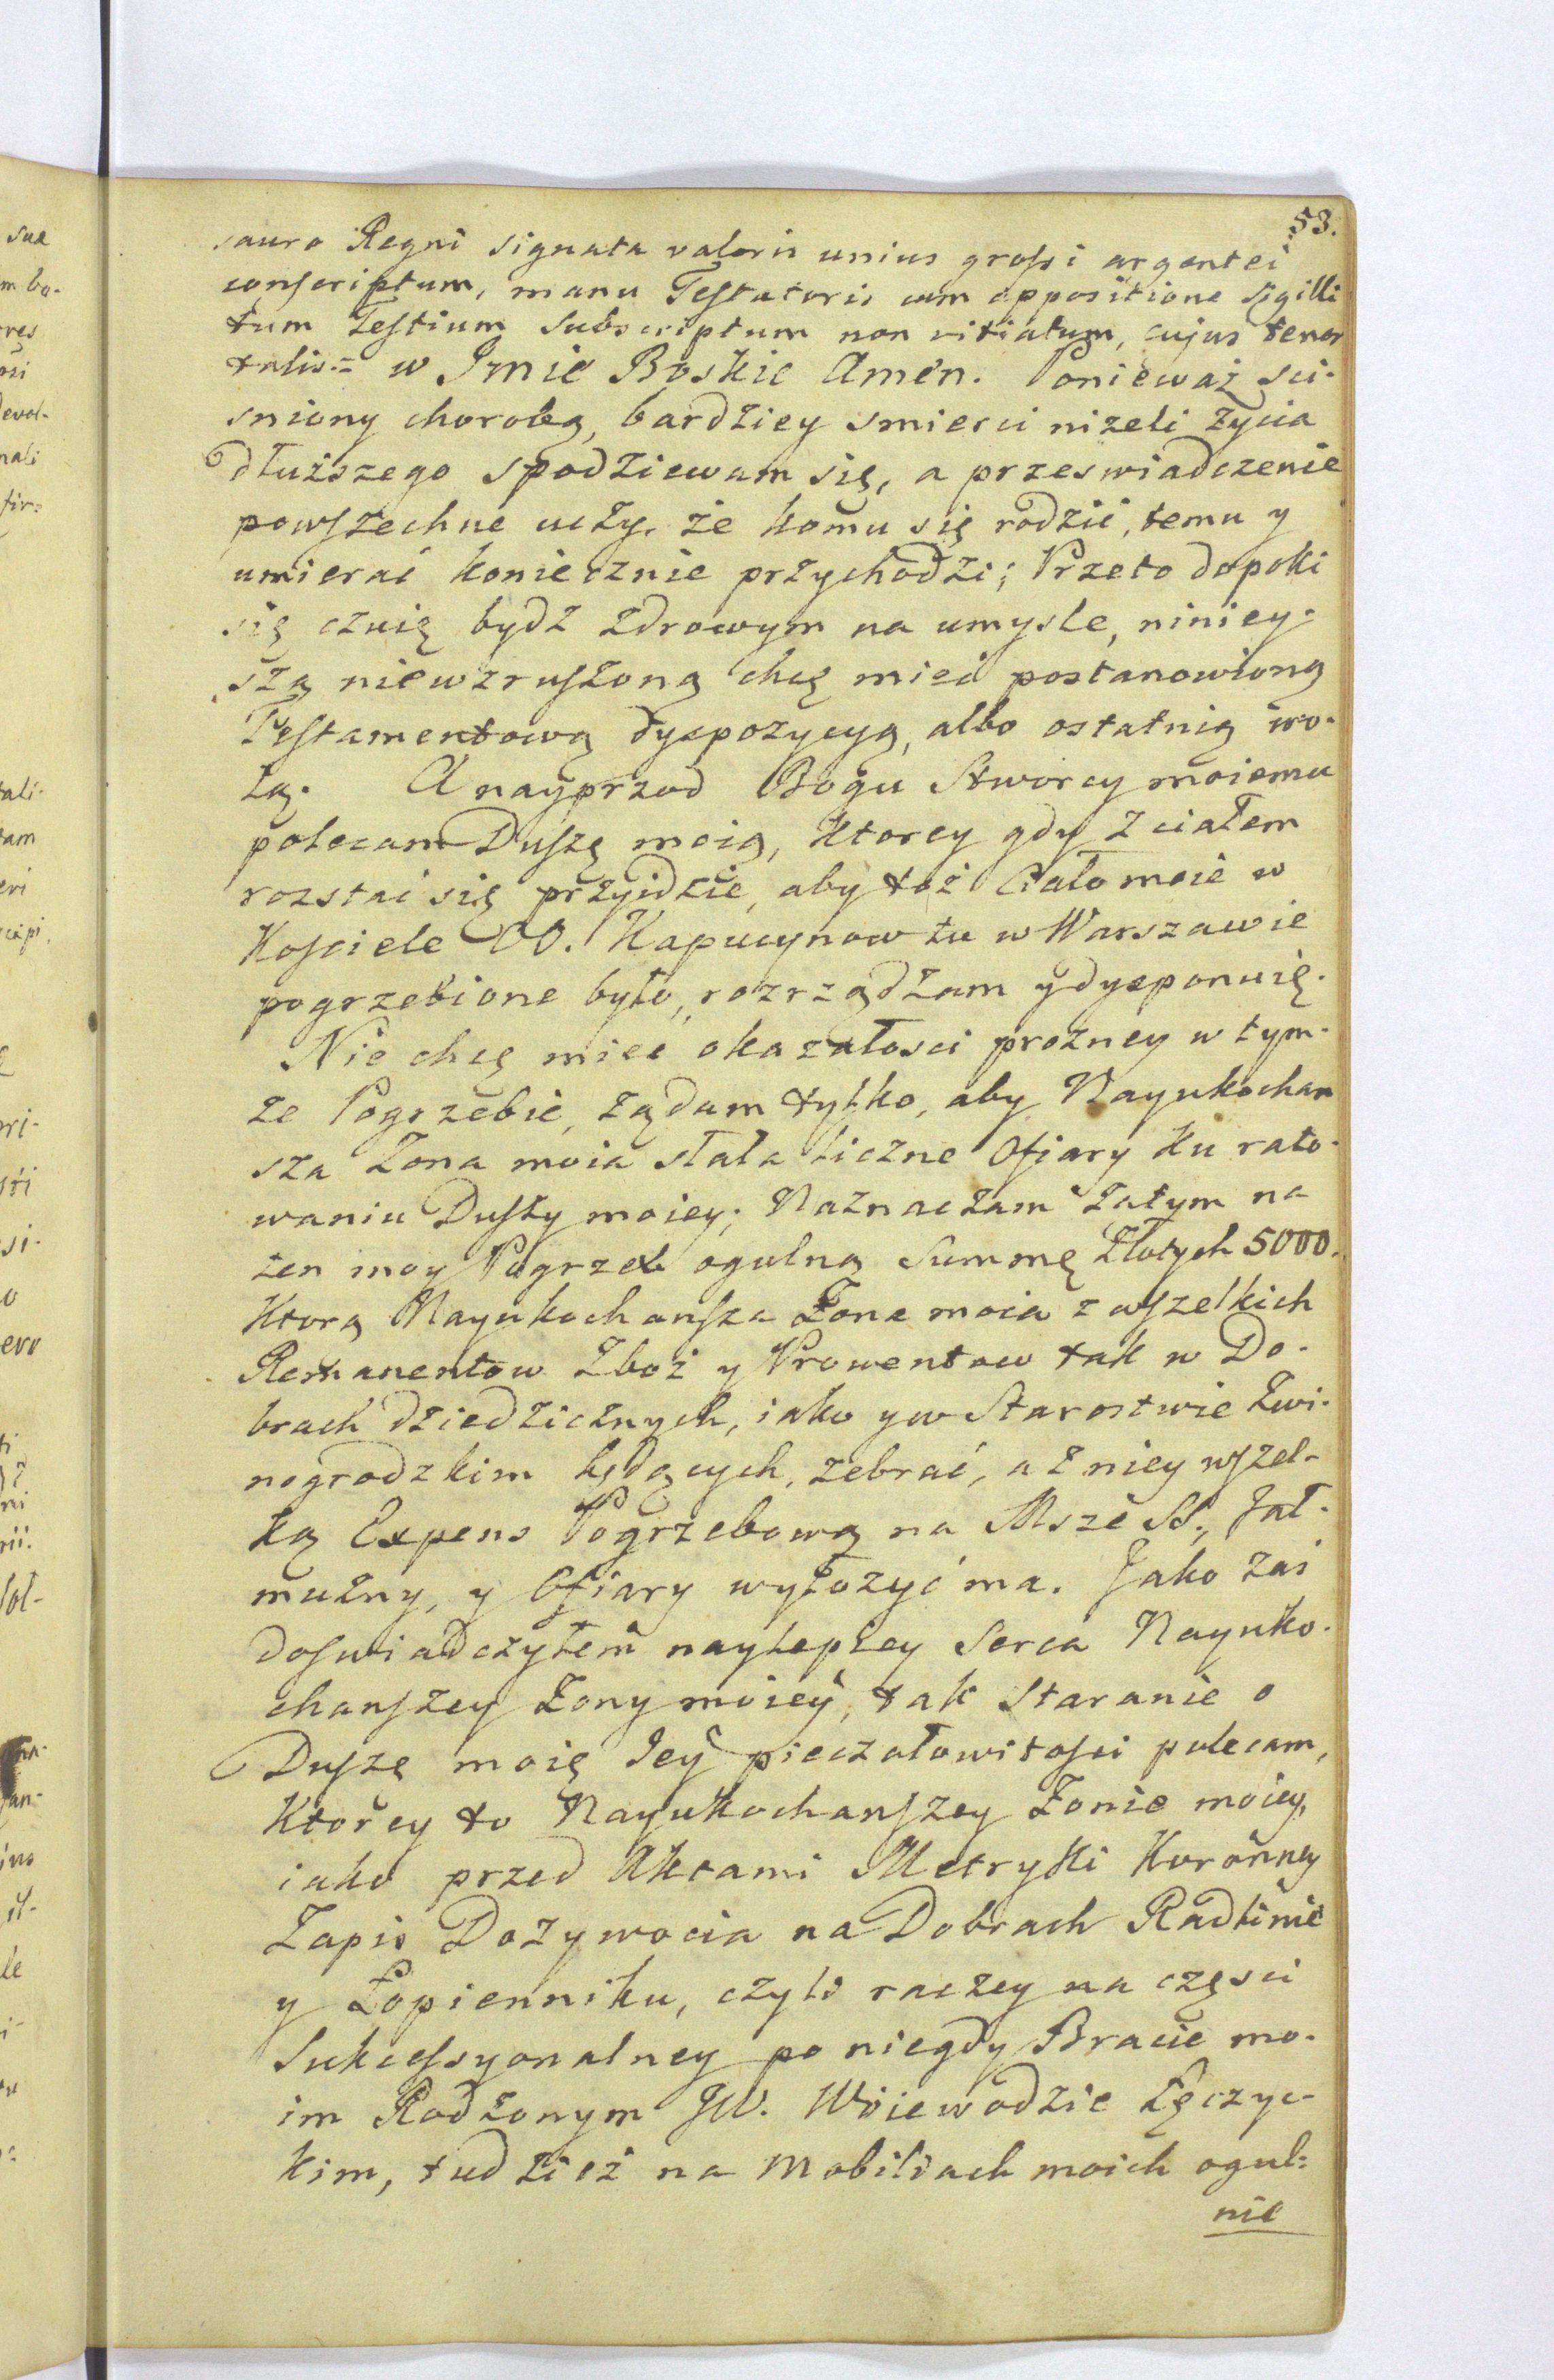 53.
sauro Regni signata valoris unius grossi argentei
conscriptum, manu Testatoris cum appositione Sigilli
tum Testium subscriptum non vitiatum, cujus tenor
talis = w Imie Boskie Amen. Ponieważ sci-
sniony chorobą, bardziey smierci niżeli życia
dłuższego spodziewam się, a przeswiadczenie
powszechne uczy, że komu się rodzić, temu y
umierać koniecznie przychodzi; Przeto dopoki
się czuię bydz zdrowym na umysle, niniey-
szą niewzruszoną chcę mieć postanowioną
Testamentową dyspozycyą, albo ostatnią wo-
lą. A nayprzod Bogu Stworcy moiemu
polecam Duszę moią, ktorey gdy z ciałem
rozstać się przyidzie, aby też Ciało moie w
Kosciele OO. Kapucynow tu w Warszawie
pogrzebione było, rozrządzam y dysponuię.
Nie chcę mieć okazałosci prożney w tym-
że Pogrzebie, żądam tylko, aby Nayukochan
sza Żona moia słała liczne Ofiary ku rato-
waniu Duszy moiey; Naznaczam zatym na
ten moy Pogrzeb ogulną Summę Złotych 5000.
Ktorą Nayukochansza Żona moia z wszelkich
Remanentow Zboż y Prowentow tak w Do-
brach dziedzicznych, iako y w Starostwie Zwi-
nogrodzkim będących, zebrać, a z niey wszel-
ką Expens Pogrzebową na Msze SS., Jał-
mużny, y Ofiary wyłożyć ma. Jako zaś
doswiadczyłem naylepszey Serca Nayuko-
chanszey Żony moiey, tak staranie o
Duszę moię Jey pieczołowitosci polecam,
Ktorey to Nayukochanszey Żonie moiey,
iako przed Aktami Metryki Koronney
Zapis Dożywocia na Dobrach Radlinie
y Łopienniku, czyli raczey na części
Sukcessyonalney po niegdy Bracie mo-
im Rodzonym JW. Woiewodzie Łęczyc-
kim, tudzież na Mobiliach moich ogul=
nie